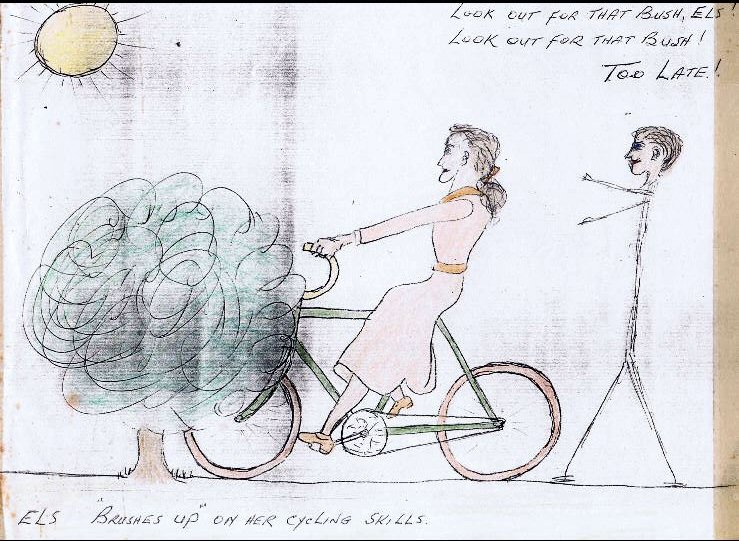 LOOK OUT FOR THAT BUSH, ELS!
LOOK OUT FOR THAT BUSH!
TOO LATE!
ELS "BRUSHES UP" ON HER CYCLING SKILLS.